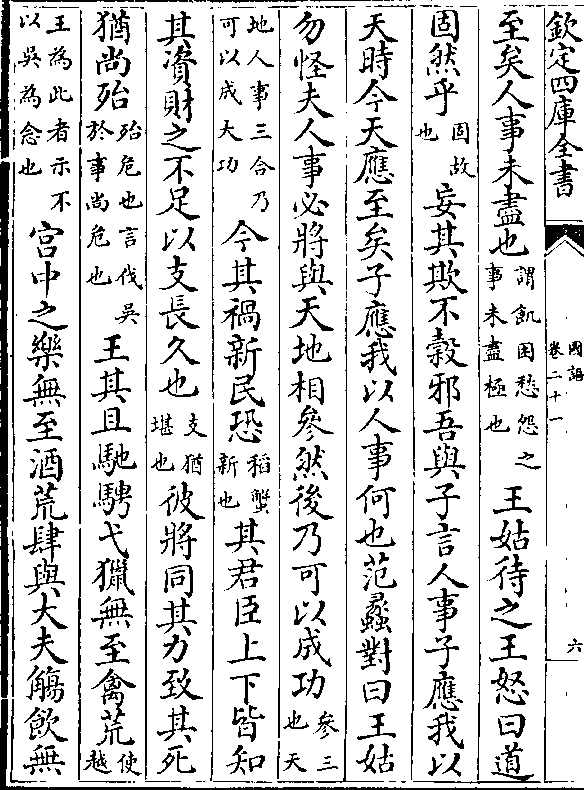 欽定四庫全書
國語
卷二十一
六
至矣人事未盡也謂飢困愁怨之事未盡極也王姑待之王怒曰道
固然乎固故也妄其欺不穀邪吾與子言人事子應我以
天時今天應至矣子應我以人事何也范蠡對曰王姑
勿怪夫人事必將與天地相參然後乃可以成功參三也天
地人事三合乃可以成大功今其禍新民恐稻蟹新也其君臣上下皆知
其資財之不足以支長久也支猶堪也彼將同其力致其死
猶尚殆殆危也言伐吳於事尚危也王其且馳騁弋獵無至禽荒使越
王為此者示不以吳為念也宮中之樂無至酒荒肆與大夫觴飲無